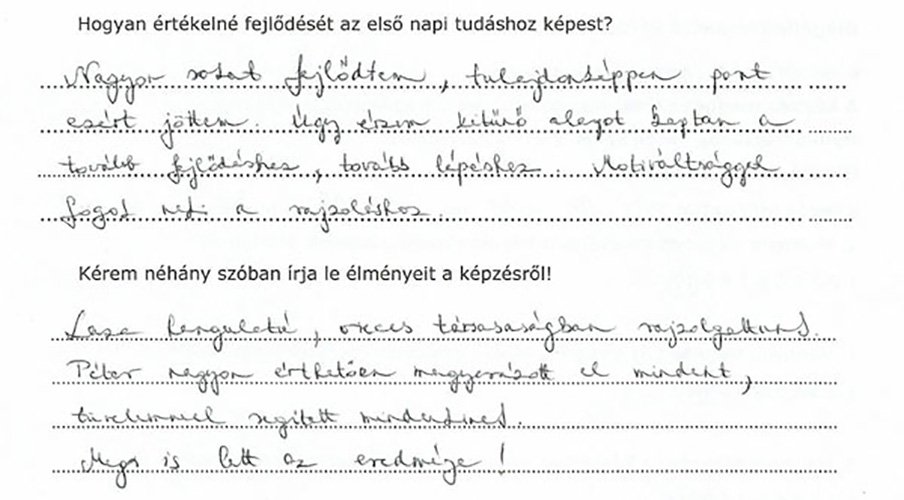 Hogyan értékelné fejlődését az első napi tudáshoz képest?
Nagyon sokat fejlődtem, tulajdonképpen pont
ezért jöttem. Úgy érzem kitűnő alapot kaptam a
tovább fejlődéshez, tovább lépéshez. Motiváltsággal
fogok neki a rajzoláshoz.
Kérem néhány szóban írja le élményeit a képzésről!
Laza hangulatú, vicces társaságban rajzolgattunk.
Péter nagyon érthetően magyarázott el mindent,
türelemmel segített mindenkinek.
Meg is lett az eredménye!